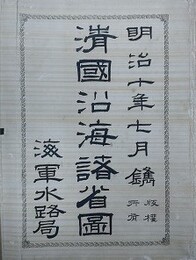 明治十年七月鐫
版權所有
清國沿海諸省圖
海軍水路局